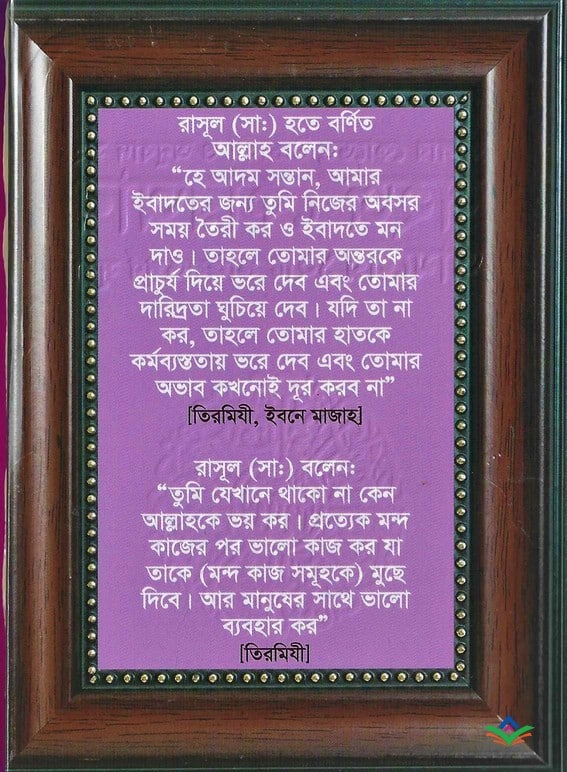 রাসূল (সা:) হতে বর্ণিত
আল্লাহ বলেন:
“হে আদম সন্তান, আমার
ইবাদতের জন্য তুমি নিজের অবসর
সময় তৈরী কর ও ইবাদতে মন
দাও। তাহলে তোমার অন্তরকে
প্রাচুর্য দিয়ে ভরে দেব এবং তোমার
দারিদ্রতা ঘুচিয়ে দেব। যদি তা না
কর, তাহলে তোমার হাতকে
কর্মব্যস্ততায় ভরে দেব এবং তোমার
অভাব কখনোই দূর করব না”
[তিরমিযী, ইবনে মাজাহ]
রাসূল (সা:) বলেন:
“তুমি যেখানে থাকো না কেন
আল্লাহকে ভয় কর। প্রত্যেক মন্দ
কাজের পর ভালো কাজ কর যা
তাকে (মন্দ কাজ সমূহকে) মুছে
দিবে। আর মানুষের সাথে ভালো
ব্যবহার কর”
[তিরমিযী]